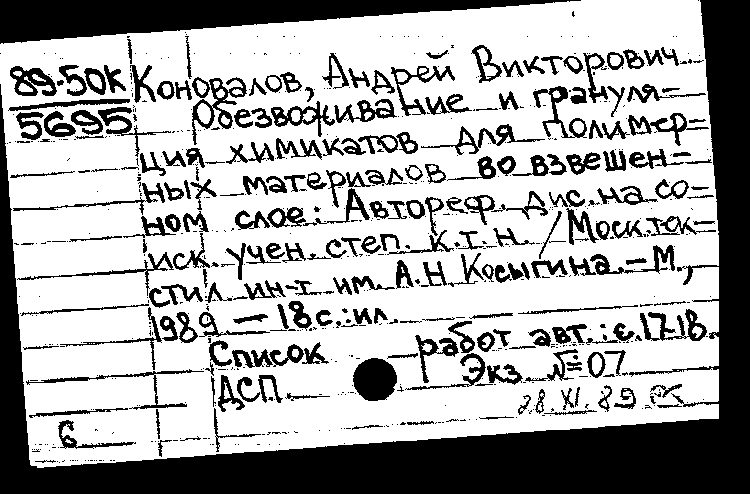 89-50к Коновалов, Андрей Викторович
5695 Обезвоживание и грануля-
ция химикатов для полимер-
ных материалов во взвешен-
ном слое: Автореф. дис. на со-
иск. учен. степ. к.т.н. / Моск. тек-
стил. ин-т им. А.Н. Косыгина. – М.,
1989 – 18 с.: ил.
Список работ авт.: с. 17-18.
ДСП. Экз. №07
28.XI.89
6